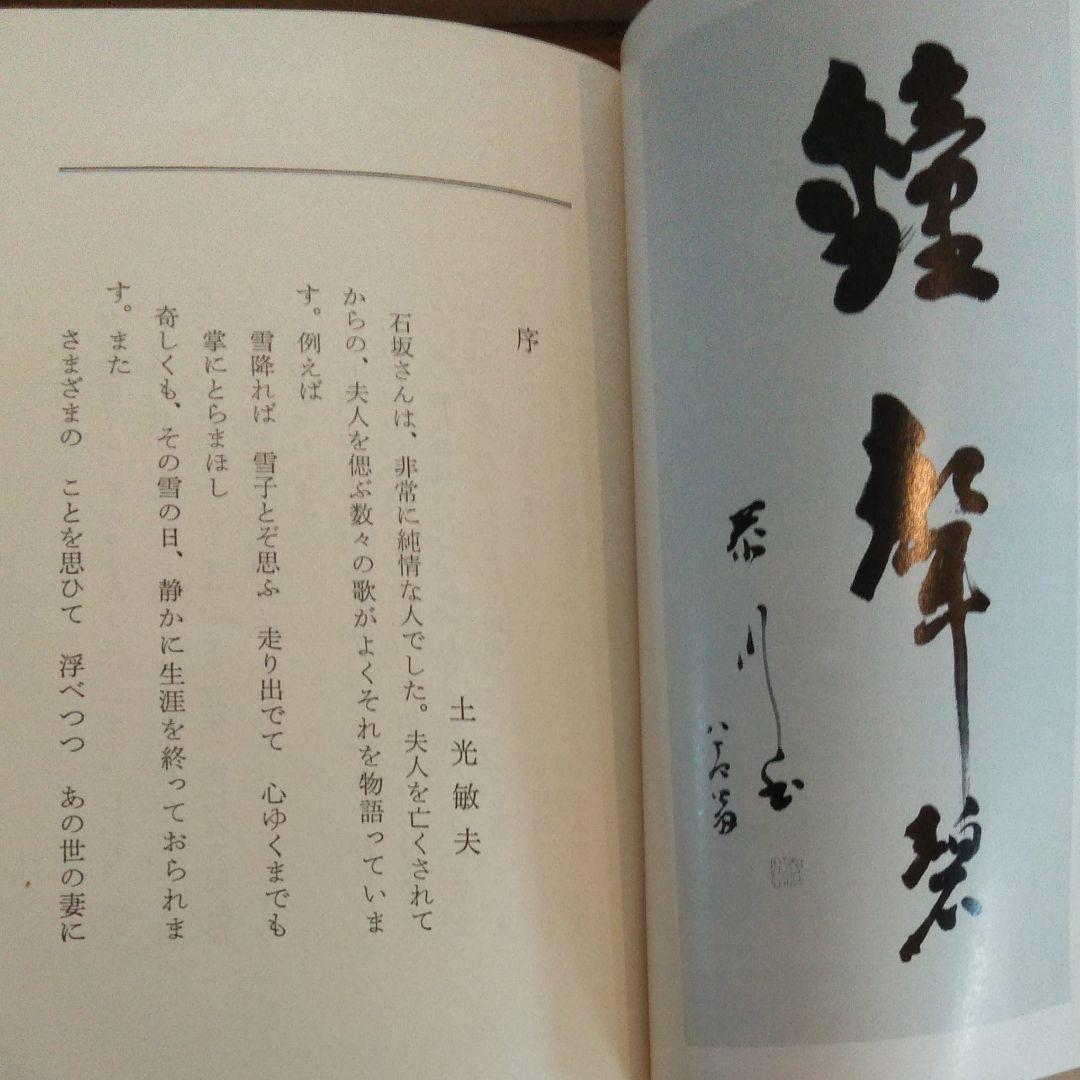 鐘聲碧
泰川書
八十四翁
序
土光敏夫
石坂さんは、非常に純情な人でした。夫人を亡くされて
からの、夫人を偲ぶ数々の歌がよくそれを物語っていま
す。例えば
雪降れば　雪子とぞ思ふ　走り出でて　心ゆくまでも
掌にとらまほし
奇しくも、その雪の日、静かに生涯を終っておられま
す。また
さまざまの　ことを思ひて　浮べつつ　あの世の妻に